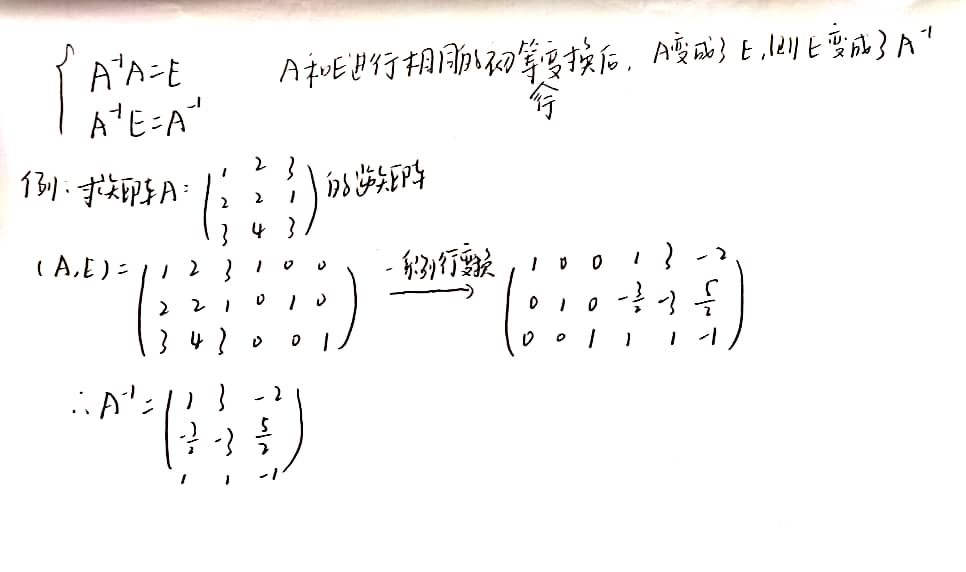 A⁻¹A=E
A⁻¹E=A⁻¹
A和E进行相同的初等行变换后，A变成了E，则E变成了A⁻¹
例：求矩阵A：
1 2 3
2 2 1
3 4 3
的逆矩阵
(A,E)=
1 2 3 1 0 0
2 2 1 0 1 0
3 4 3 0 0 1
一系列行变换
1 0 0 1 3 -2
0 1 0 -3/2 -3 5/2
0 0 1 1 1 -1
∴A⁻¹=
1 3 -2
-3/2 -3 5/2
1 1 -1